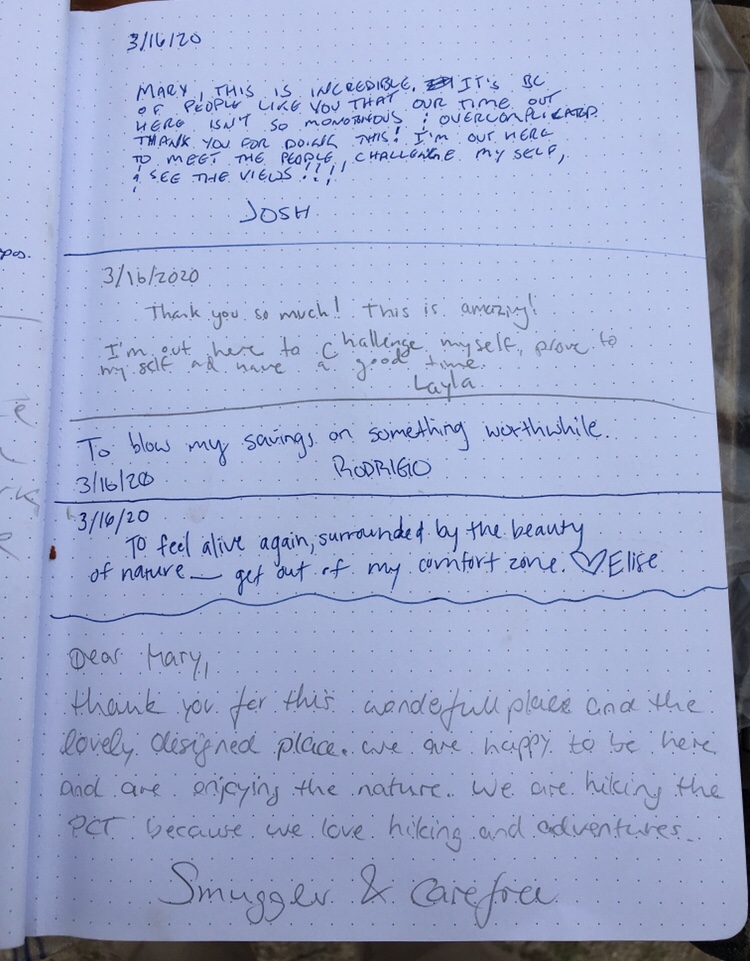 3/16/20
MARY, THIS IS INCREDIBLE. IT'S BC
OF PEOPLE LIKE YOU THAT OUR TIME OUT
HERE ISN'T SO MONOTONOUS & OVERCOMPLICATED.
THANK YOU FOR DOING THIS! I'M OUT HERE
TO MEET THE PEOPLE, CHALLENGE MY SELF,
& SEE THE VIEWS!!!!
JOSH
3/16/2020
Thank you so much! This is amazing!
I'm out here to Challenge myself, prove to
my self ad have a good time.
Layla
To blow my savings on something worthwhile.
3/16/20 RODRIGO
3/16/20
To feel alive again, surrounded by the beauty
of nature — get out of my comfort zone. ♡ Elise
Dear Mary,
thank you for this wonderfull place and the
lovely designed place. We are happy to be here
and are enjoying the nature. We are hiking the
PCT because we love hiking and adventures.
Smuggler & Carefree